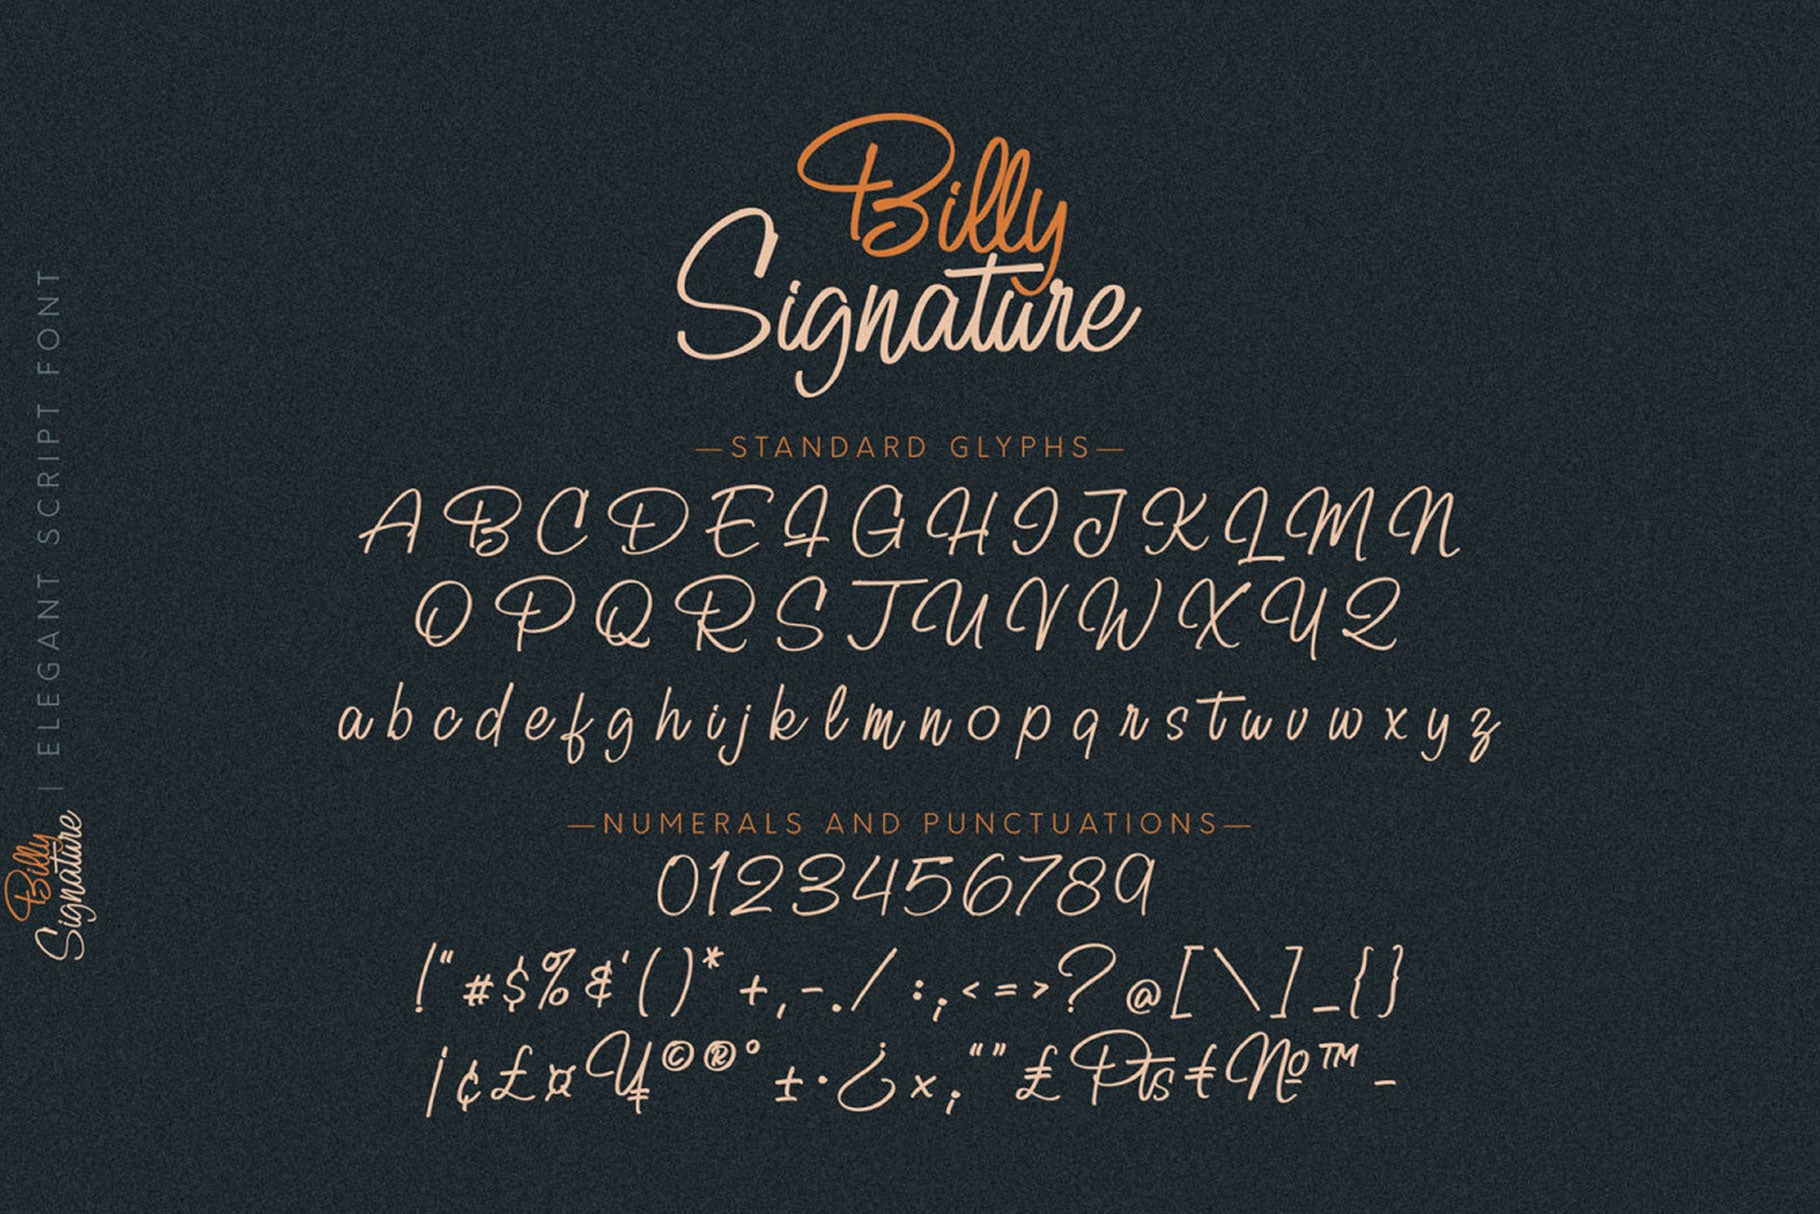 Billy
Signature
—STANDARD GLYPHS—
A B C D E F G H I J K L M N
O P Q R S T U V W X Y Z
a b c d e f g h i j k l m n o p q r s t u v w x y z
—NUMERALS AND PUNCTUATIONS—
0123456789
!"#$%&'()*+,-./:;<=>?@[\]_{}
|¢£¤¥©®°±·¿×;“”₤₧€№™-
Billy
Signature
| ELEGANT SCRIPT FONT